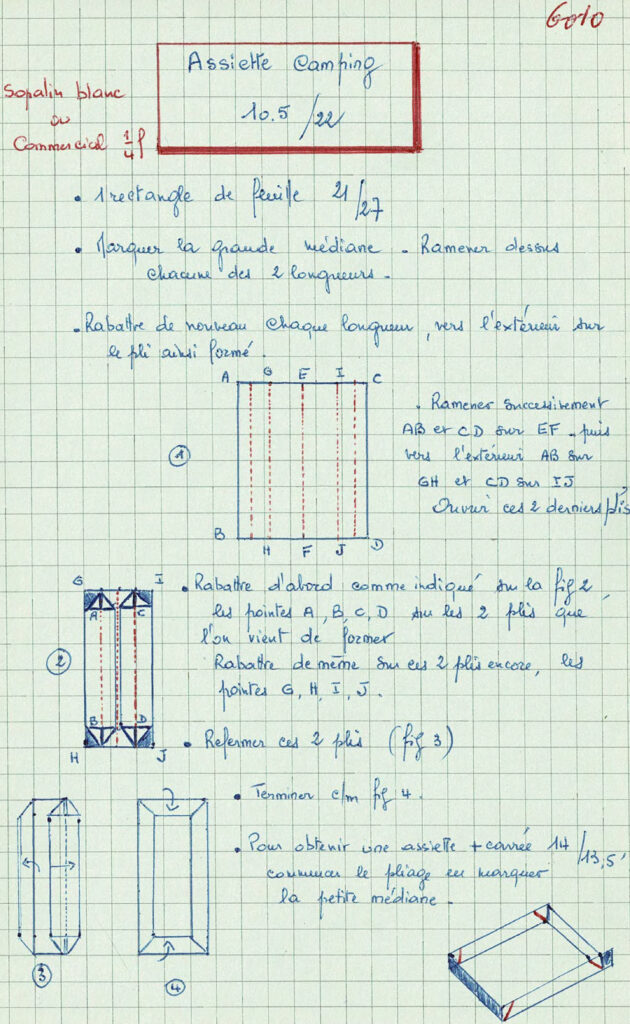 Assiette Camping
10.5/22
Sopalin blanc
ou
Commercial 1/4 f
• 1 rectangle de feuille 21/27
• Marquer la grande médiane. Ramener dessus
chacune des 2 longueurs.
• Rabattre de nouveau chaque longueur, vers l'extérieur sur
le pli ainsi formé.
A G E I C
B H F J D
1
. Ramener successivement
AB et CD sur EF puis
vers l'extérieur AB sur
GH et CD sur IJ
Ouvrir ces 2 derniers plis
G I
A C
B D
H J
2
• Rabattre d'abord comme indiqué sur la fig 2
les pointes A, B, C, D sur les 2 plis que
l'on vient de former
Rabattre de même sur ces 2 plis encore, les
pointes G, H, I, J.
• Refermer ces 2 plis (fig 3)
• Terminer c/m fig 4.
• Pour obtenir une assiette + carrée 14/13,5
commencer le pliage en marquant
la petite médiane.
3
4